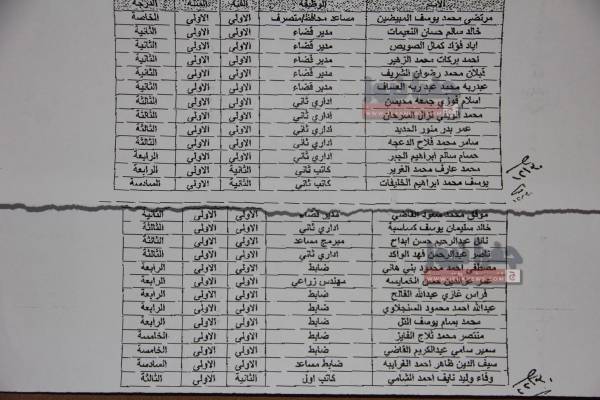 الاسم الوظيفة الفئة السنة الدرجة
مرتضى محمد يوسف المبيضين مساعد محافظ/متصرف الاولى الاولى الخاصة
خالد سالم حسان النعيمات مدير قضاء الاولى الاولى الثانية
اياد فؤاد كمال الصويص مدير قضاء الاولى الاولى الثانية
احمد بركات محمد الزهير مدير قضاء الاولى الاولى الثانية
قبلان محمد رضوان الشريف مدير قضاء الاولى الاولى الثانية
عبدربه محمد عبد ربه العساف مدير قضاء الاولى الاولى الثانية
اسلام فوزي جمعه محيسن اداري ثاني الاولى الاولى الثالثة
محمد نزال السرحان اداري ثاني الاولى الاولى الثالثة
عمر بدر منور الحديد اداري ثاني الاولى الاولى الثالثة
سامر محمد فلاح الدعجه اداري ثاني الاولى الاولى الثالثة
حسام سالم ابراهيم الجبر اداري ثاني الاولى الاولى الرابعة
محمد عارف محمد الغرير كاتب ثاني الثانية الاولى الرابعة
يوسف محمد ابراهيم الخليفات كاتب ثاني الثانية الاولى السادسة
موفق محمد سعود القاضي مدير قضاء الاولى الاولى الثانية
خالد سليمان يوسف كساسبة اداري ثاني الاولى الاولى الثالثة
نائل عبدالرحيم حسن ابداح مبرمج مساعد الاولى الاولى الثالثة
ناصر عبدالرحمن فهد الواكد اداري ثاني الاولى الاولى الثالثة
مصطفى احمد محمود بني هاني ضابط الاولى الاولى الرابعة
عمر عزالدين الخمايسه مهندس زراعي الاولى الاولى الرابعة
فراس غازي عبدالله الفالح ضابط الاولى الاولى الرابعة
عبدالله احمد محمود السنجلاوي ضابط الاولى الاولى الرابعة
محمد بسام يوسف التل ضابط الاولى الاولى الرابعة
منتصر محمد ثلاج الفايز ضابط الاولى الاولى الخامسة
سمير سامي عبدالكريم القاضي ضابط الاولى الاولى الخامسة
سيف الدين ظاهر احمد الغرايبه ضابط مساعد الاولى الاولى السادسة
وفاء وليد نايف احمد الشامي كاتب اول الثانية الاولى الثالثة